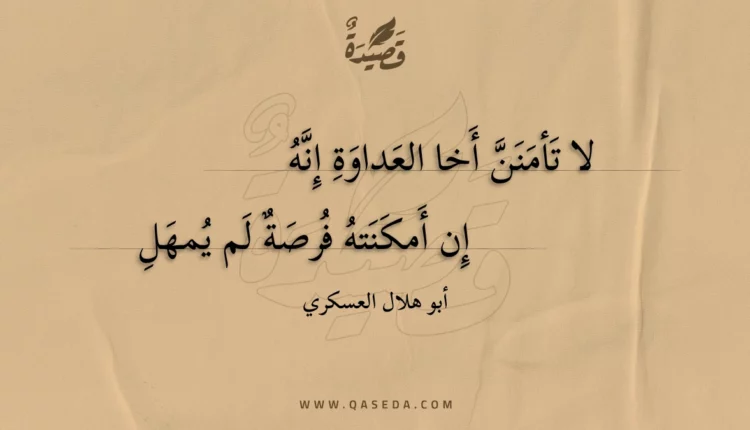 قَصِيدَةٌ
لا تَأمَنَنَّ أَخا العَداوَةِ إِنَّهُ
إِن أَمكَنَتهُ فُرصَةٌ لَم يُمهَلِ
أبو هلال العسكري
WWW.QASEDA.COM